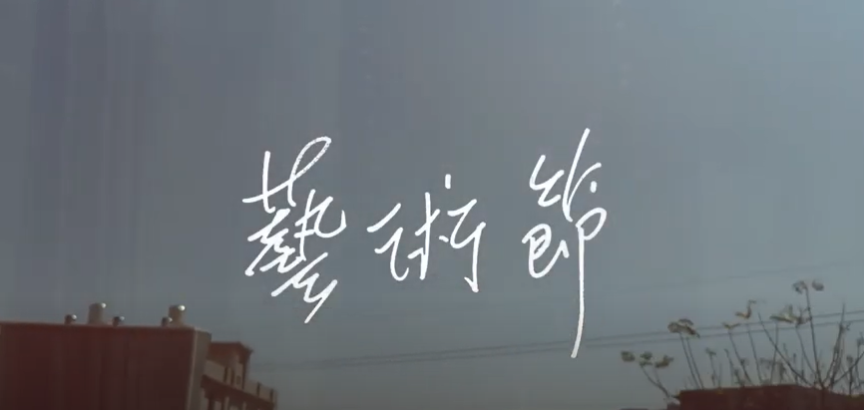 藝術節